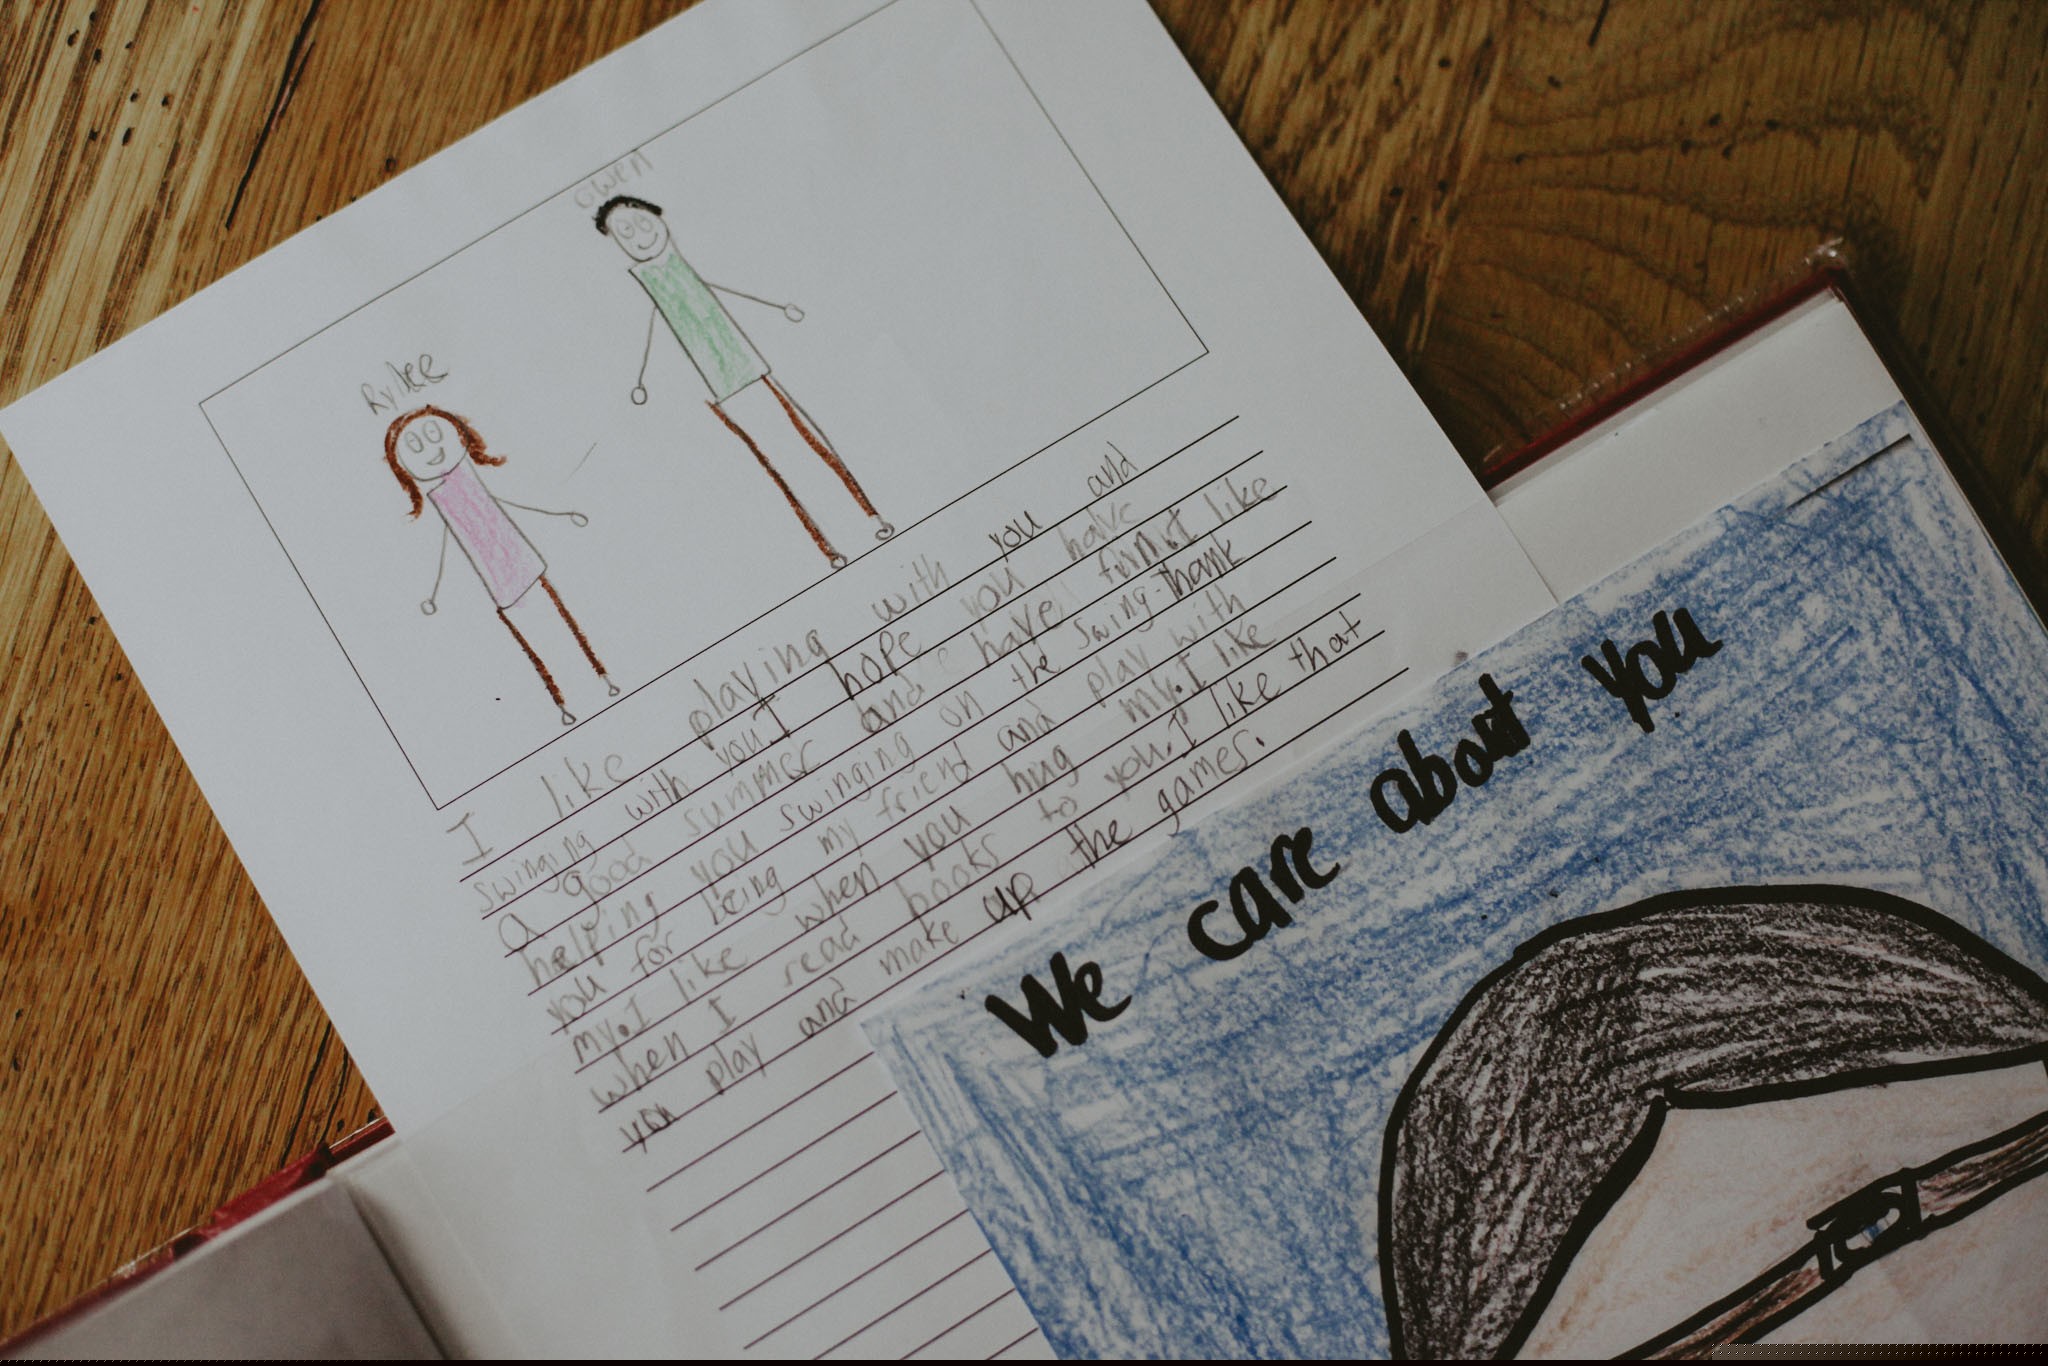 Owen
Rylee
I like playing with you and
swinging with you.I hope you have
a good summer and have fun.I like
helping you swinging on the swing.thank
you for being my friend and play with
my.I like when you hug my.I like
when I read books to you.I like that
you play and make up the games.
We care about you